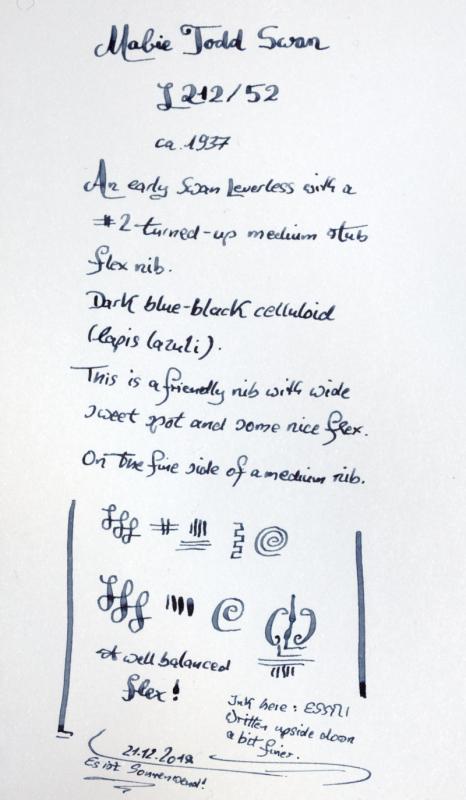 Mabie Todd Swan
L212/52
ca. 1937
An early Swan Leverless with a
#2 turned-up medium stub
flex nib.
Dark blue-black celluloid
(lapis lazuli).
This is a friendly nib with wide
sweet spot and some nice flex.
On the fine side of a medium nib.
fff #
fff
A well balanced
flex!
Ink here: ESSRI
Written upside down
a bit finer.
21.12.2018
Es ist Sonnenwend!